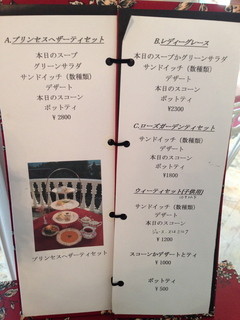 A.プリンセスヘザーティセット
本日のスープ
グリーンサラダ
サンドイッチ（数種類）
デザート
本日のスコーン
ポットティ
￥2800
プリンセスヘザーティセット
B.レディーグレース
本日のスープかグリーンサラダ
サンドイッチ（数種類）
デザート
本日のスコーン
ポットティ
￥2300
C.ローズガーデンティセット
サンドイッチ（数種類）
デザート
ポットティ
￥1800
ウィーティセット(子供用)
サンドイッチ（数種類）
デザート
本日のスコーン
￥1200
スコーンかデザートとティ
￥1000
ポットティ
￥500